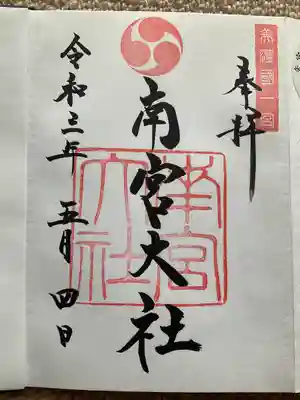 美濃國一宮
奉拝
南宮大社
南宮大社
令和三年五月四日